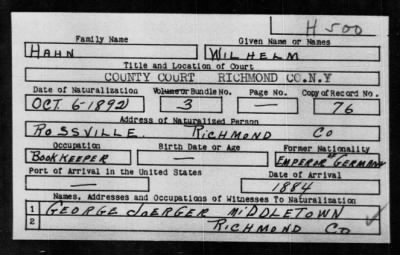 H 500
Family Name Given Name or Names
HAHN WILHELM
Title and Location of Court
COUNTY COURT RICHMOND CO.N.Y
Date of Naturalization Volume or Bundle No. Page No. Copy of Record No.
OCT. 6-1892 3 — 76
Address of Naturalized Person
ROSSVILLE. RICHMOND CO
Occupation Birth Date or Age Former Nationality
BOOKKEEPER — EMPEROR OF GERMANY
Port of Arrival in the United States Date of Arrival
— 1884
Names, Addresses and Occupations of Witnesses To Naturalization
1 GEORGE JOERGER MIDDLETOWN
2 RICHMOND CO